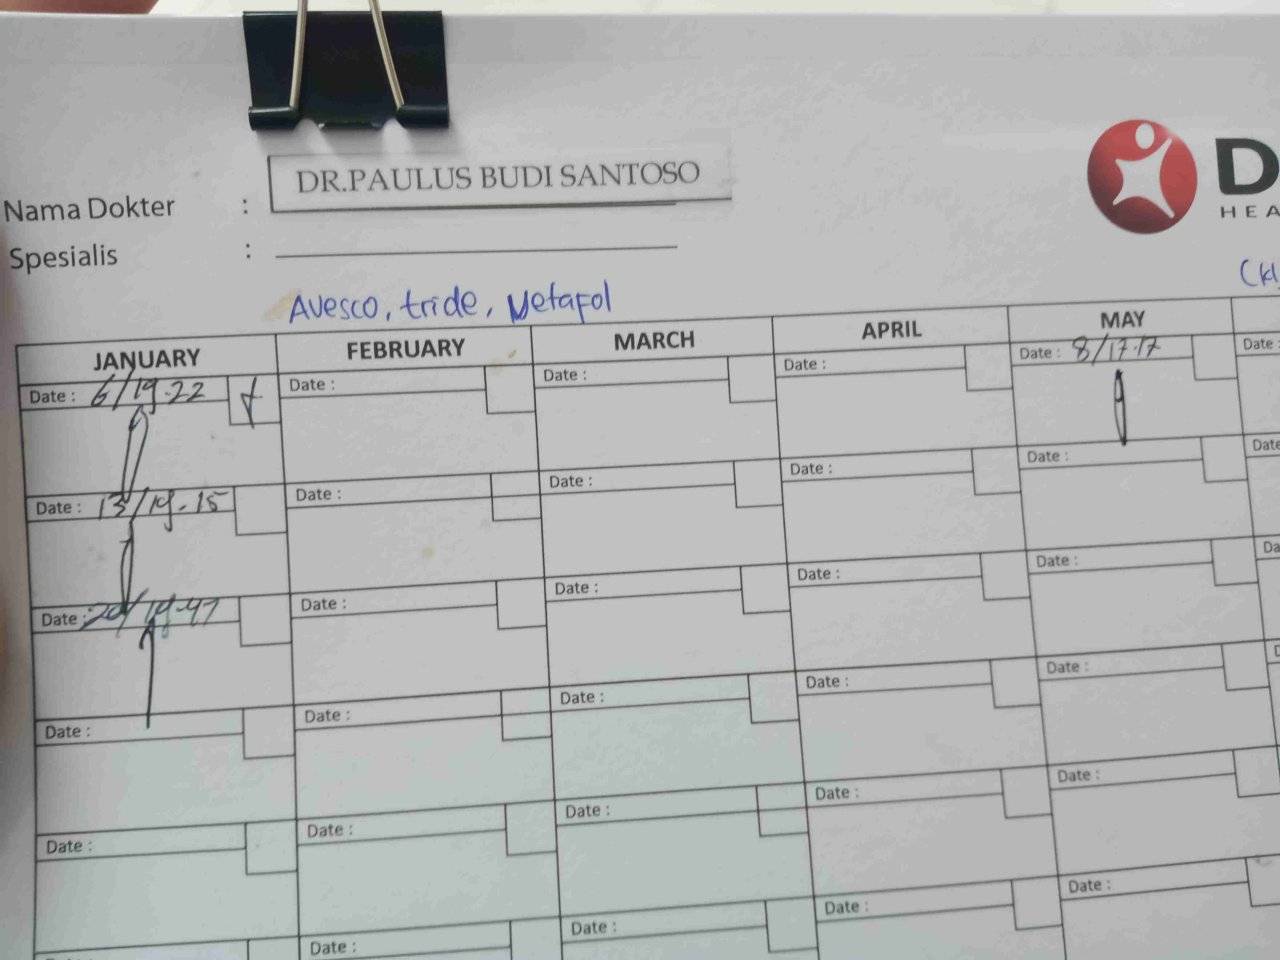 DR.PAULUS BUDI SANTOSO
Nama Dokter :
Spesialis :
D
HEA
Avesco, tride, Metafol
(kl
JANUARY FEBRUARY MARCH APRIL MAY
Date : 6/19.22 Date : Date : Date : Date : 8/17.17 Date :
Date : 13/19.15 Date : Date : Date : Date : Date
Date : 20/19.47 Date : Date : Date : Date : Da
Date : Date : Date : Date : Date : D
Date : Date : Date : Date : Date :
Date : Date : Date : Date :